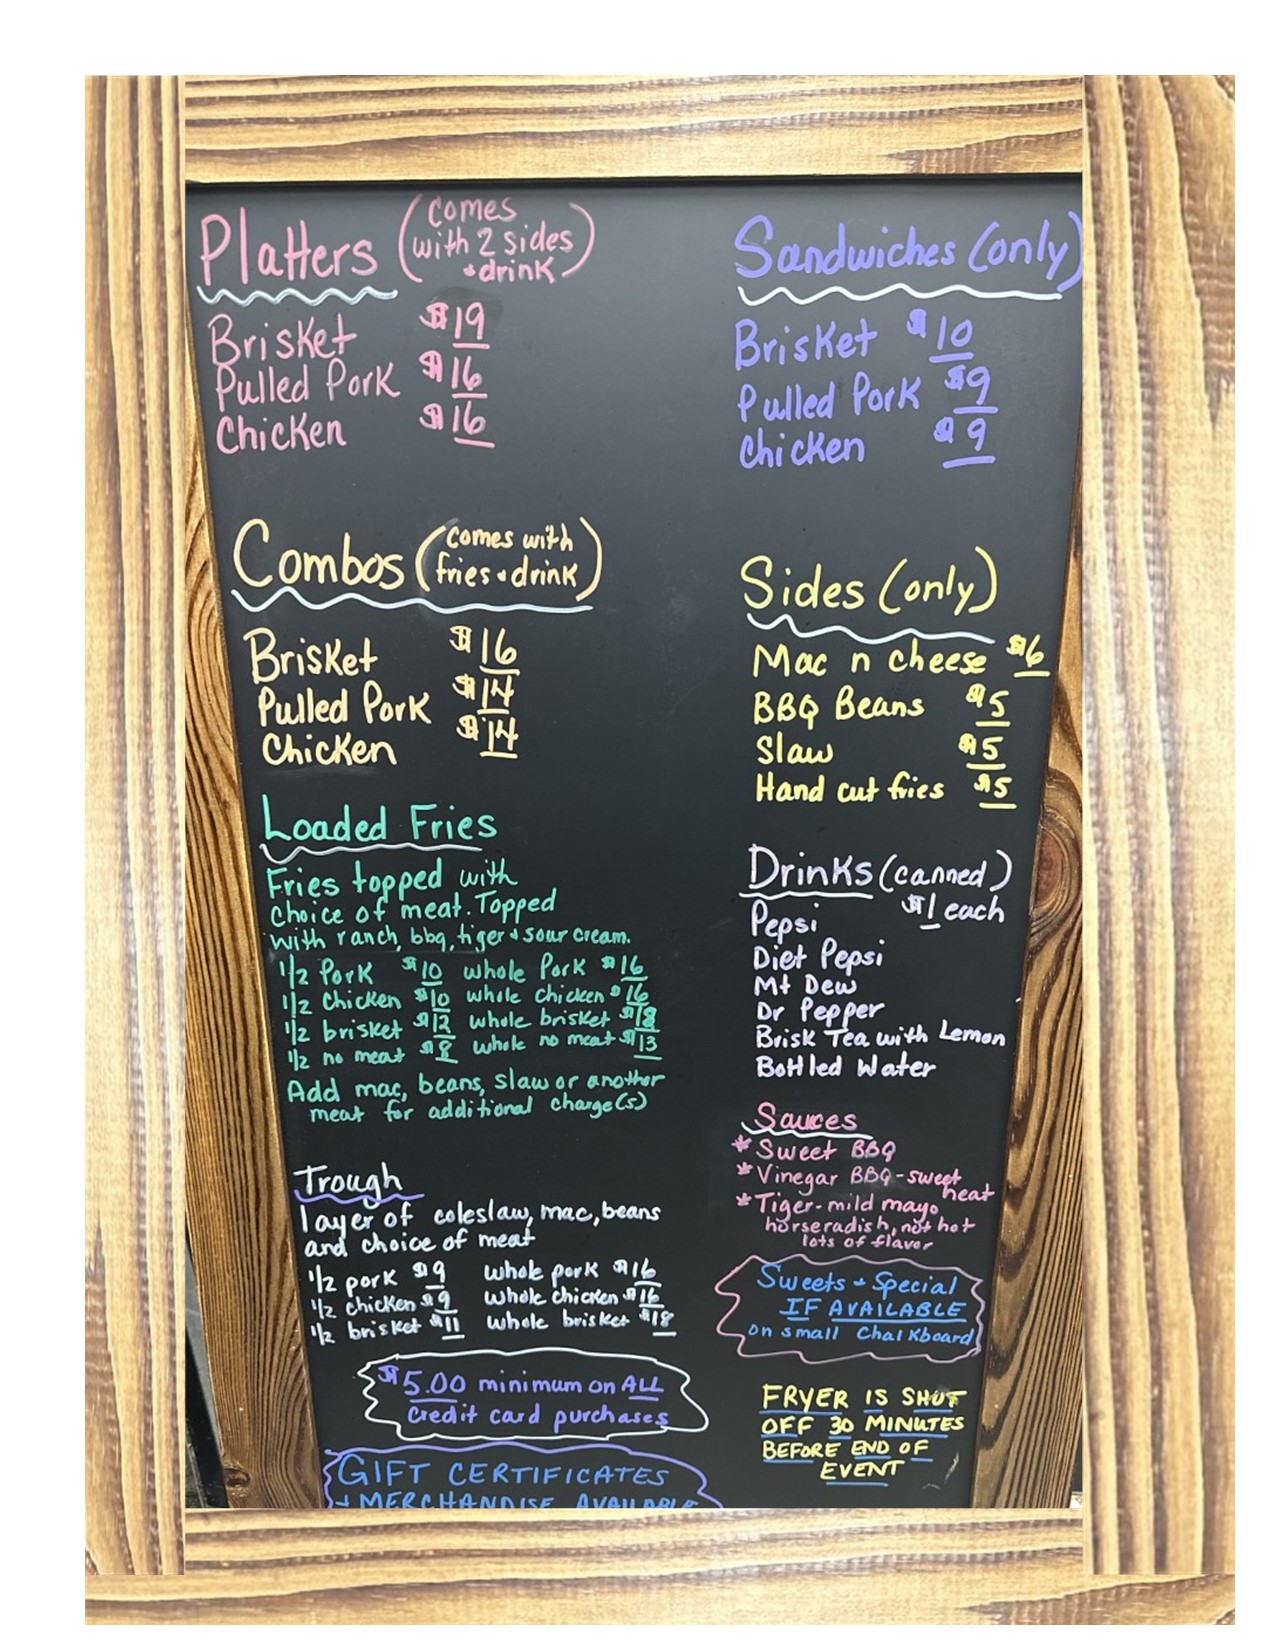 Platters (comes with 2 sides + drink)
Brisket $19
Pulled Pork $16
Chicken $16
Combos (comes with fries + drink)
Brisket $16
Pulled Pork $14
Chicken $14
Loaded Fries
Fries topped with
choice of meat. Topped
with ranch, bbq, tiger + sour cream.
1/2 Pork $10 whole Pork $16
1/2 chicken $10 whole chicken $16
1/2 brisket $12 whole brisket $18
1/2 no meat $8 whole no meat $13
Add mac, beans, slaw or another
meat for additional charge(s)
Trough
layer of coleslaw, mac, beans
and choice of meat
1/2 pork $9 whole pork $16
1/2 chicken $9 whole chicken $16
1/2 brisket $11 whole brisket $18
$5.00 minimum on ALL
credit card purchases
GIFT CERTIFICATES
+ MERCHANDISE AVAILABLE
Sandwiches (only)
Brisket $10
Pulled Pork $9
Chicken $9
Sides (only)
Mac n cheese $6
BBQ Beans $5
Slaw $5
Hand cut fries $5
Drinks (canned)
$1 each
Pepsi
Diet Pepsi
Mt Dew
Dr Pepper
Brisk Tea with Lemon
Bottled Water
Sauces
* Sweet BBQ
* Vinegar BBQ - sweet
heat
* Tiger - mild mayo,
horseradish, not hot
lots of flavor
Sweets + Special
IF AVAILABLE
on small chalkboard
FRYER IS SHUT
OFF 30 MINUTES
BEFORE END OF
EVENT